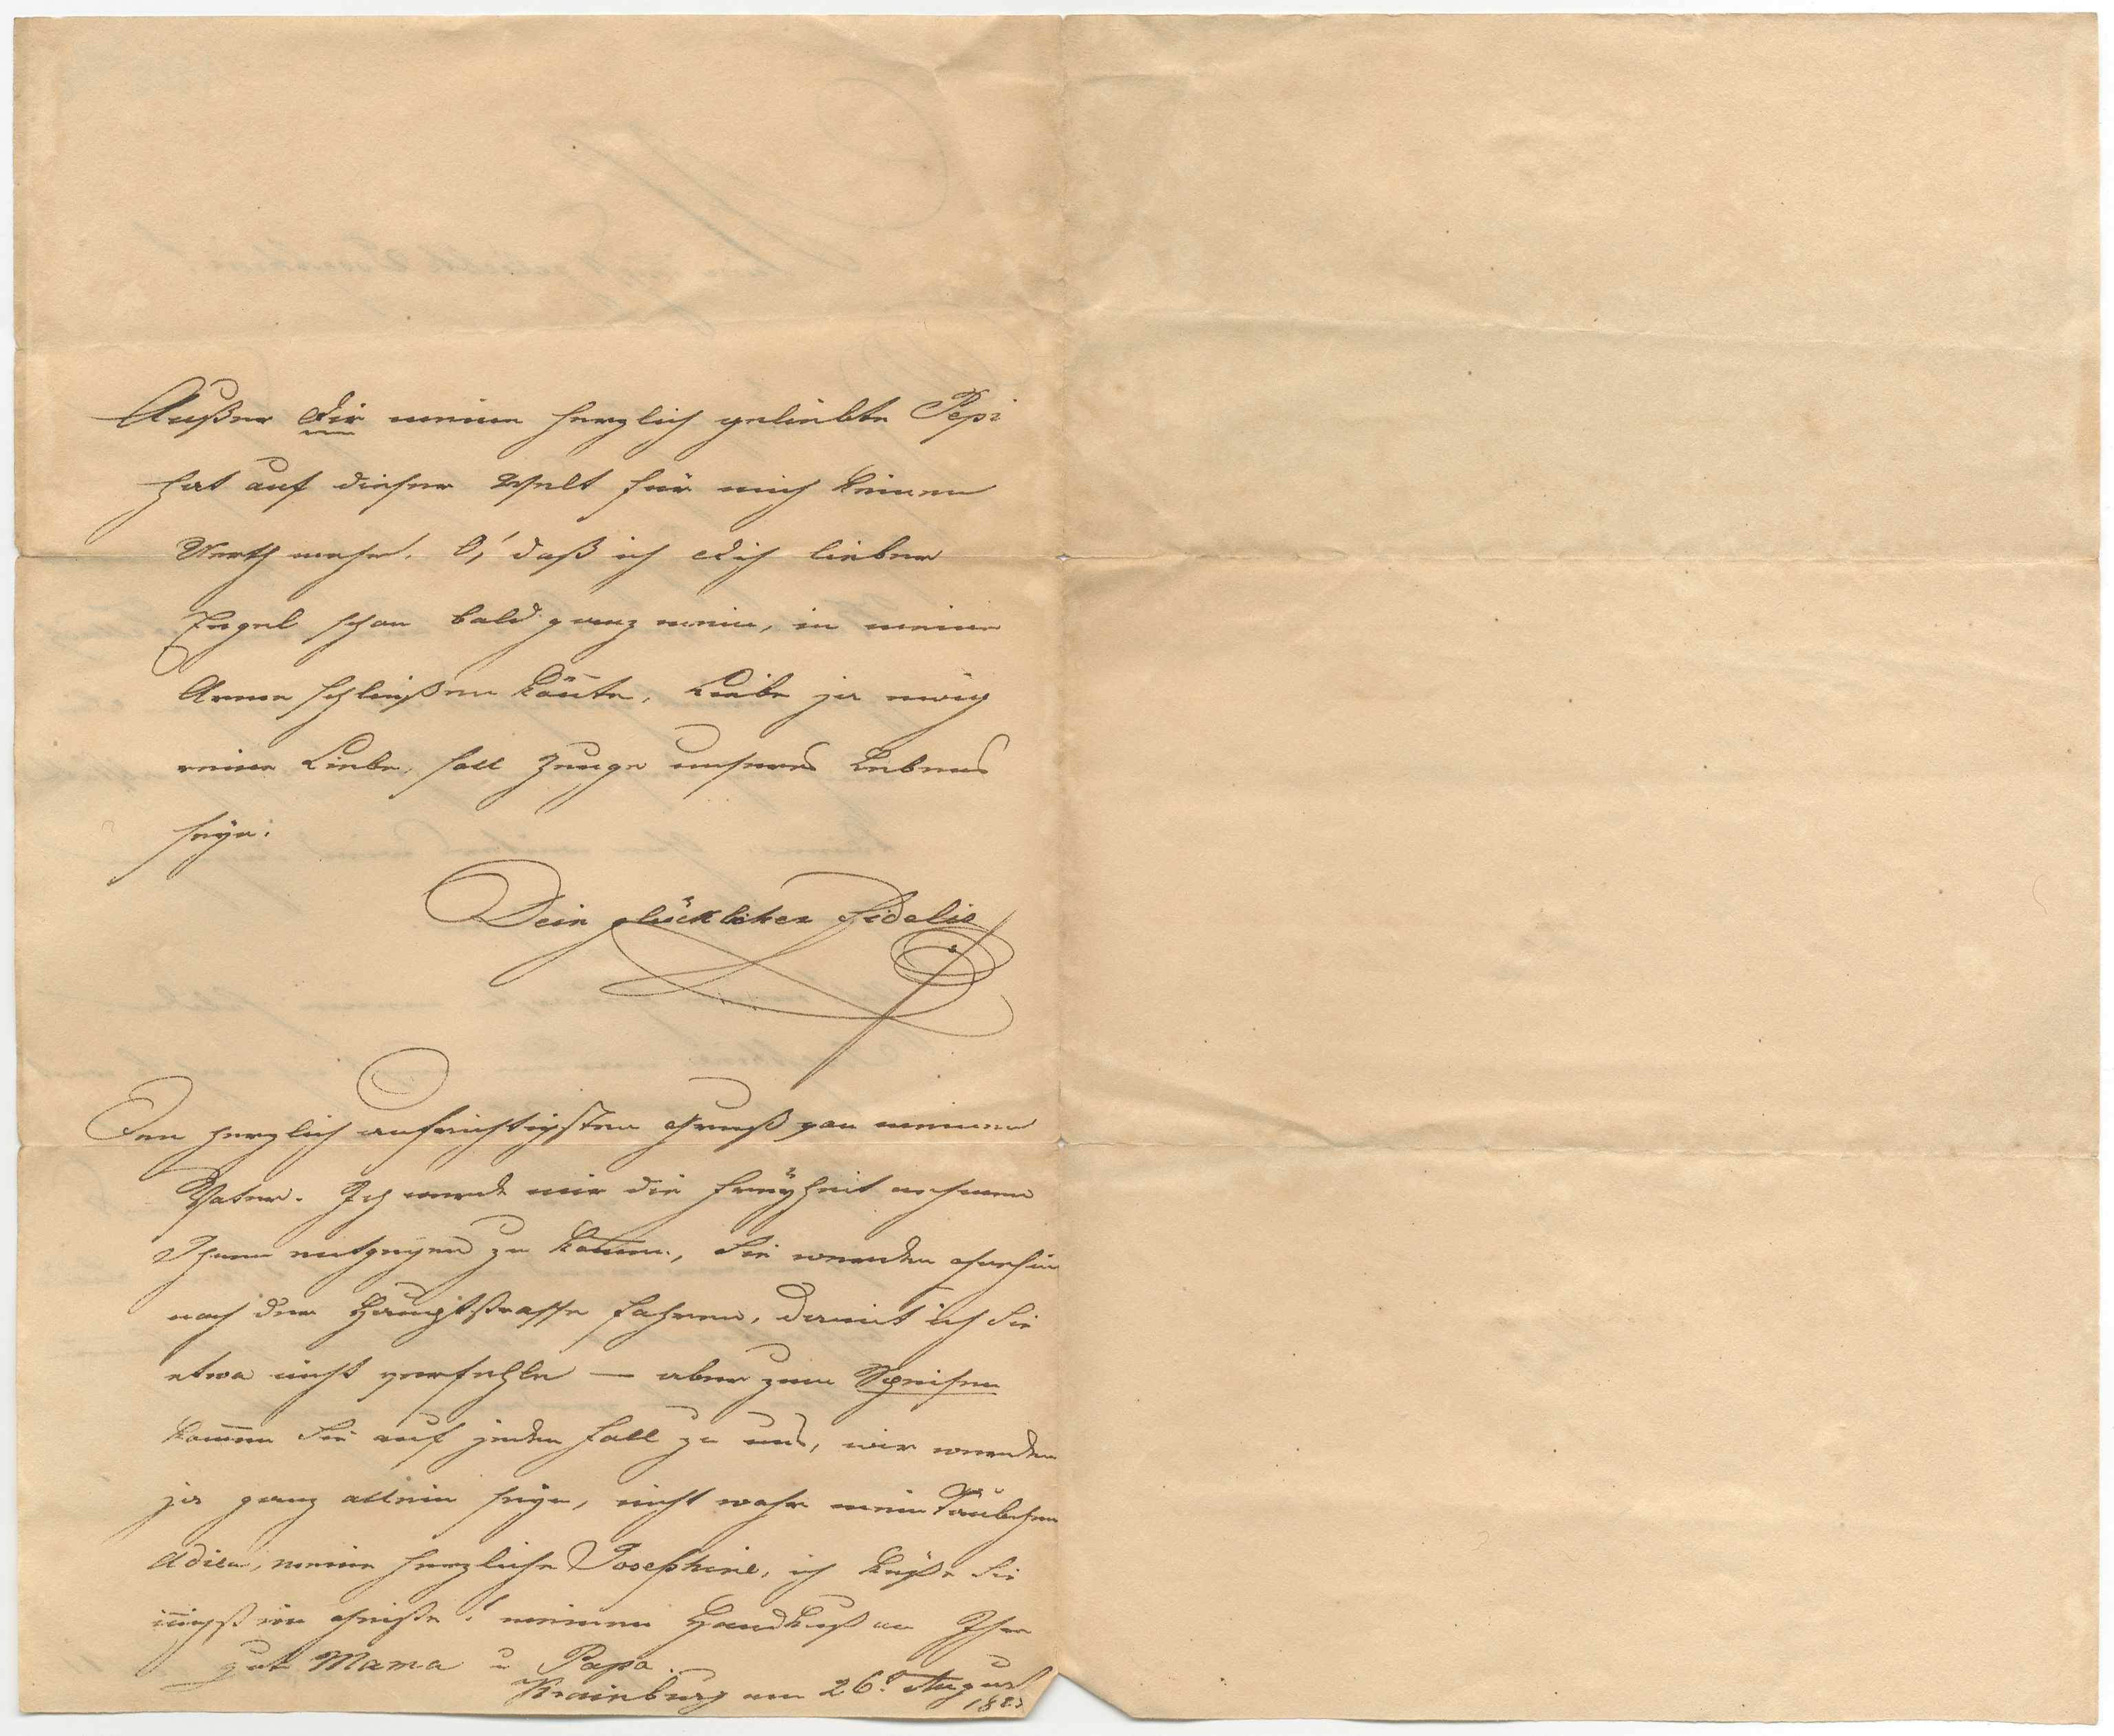 Außer Dir meine herzlich geliebte Pepi
hat auf dieser Welt für mich keinen
Werth mehr. O, daß ich Dich lieber
Engel schon bald ganz mein, in meine
Arme schließen könte, Liebe ja ewig
reine Liebe, soll Zeuge unseres Lebens
seyn.
Dein glücklicher Fidelis
Den herzlich aufrichtigsten Gruß von meinem
Vater. Ich werde mir die Freyheit nehmen
Ihnen entgegen zu kom̄en, Sie werden ohnehin
nach der Hauptstrasse fahren, damit ich Sie
etwa nicht verfehle — aber zum Speisen
kom̄en Sie auf jeden Fall zu uns, wir werden
ja ganz allein seyn, nicht wahr mein Täubchen
Adieu, meine herzliche Josephine, ich küße Sie
in̄igst im Geiste! meinen Handkuß an Ihre
gute Mama u Papa.
Krainburg am 26t August